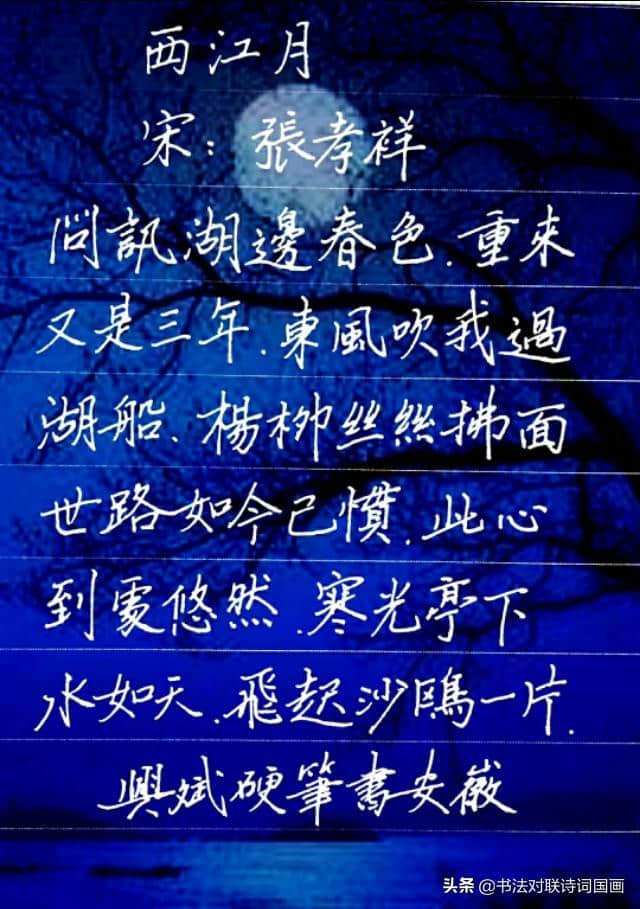 西江月
宋：張孝祥
問訊湖邊春色.重來
又是三年.東風吹我過
湖船.楊柳丝絲拂面
世路如今已慣.此心
到處悠然.寒光亭下
水如天.飛起沙鷗一片.
興斌硬筆書安徽
头条 @书法对联诗词国画